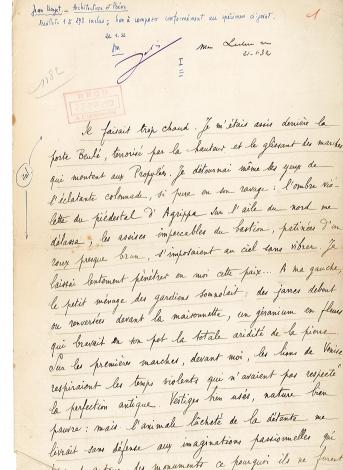 Architecture et Poésie
1
21.1.32
1182
Il faisait trop chaud. Je m'étais assis derrière la
porte Beulé, terrorisé par la hauteur et le glissant des marches
qui montent aux Propylées. Je détournai même les yeux de
l'éclatante colonnade, si pure en son ravage : l'ombre vio-
lette du piédestal d'Agrippa sur l'aile du nord me
délassa ; les assises impeccables du bastion, patinées d'un
roux presque brun, s'imposaient au ciel sans vibrer. Je
laissai lentement pénétrer en moi cette paix... A ma gauche,
le petit ménage des gardiens somnolait ; des jarres debout
ou renversées devant la maisonnette, un géranium en fleurs
qui bravait en son pot la totale aridité de la pierre.
Sur les premières marches, devant moi, les lions de Venise
respiraient les temps violents que n'avaient pas respecté
la perfection antique. Vestiges bien usés, nature bien
pauvre : mais l'animale lâcheté de la détente me
livrait sans défense aux imaginations passionnelles qui
des monuments ce pourquoi ils ne furent